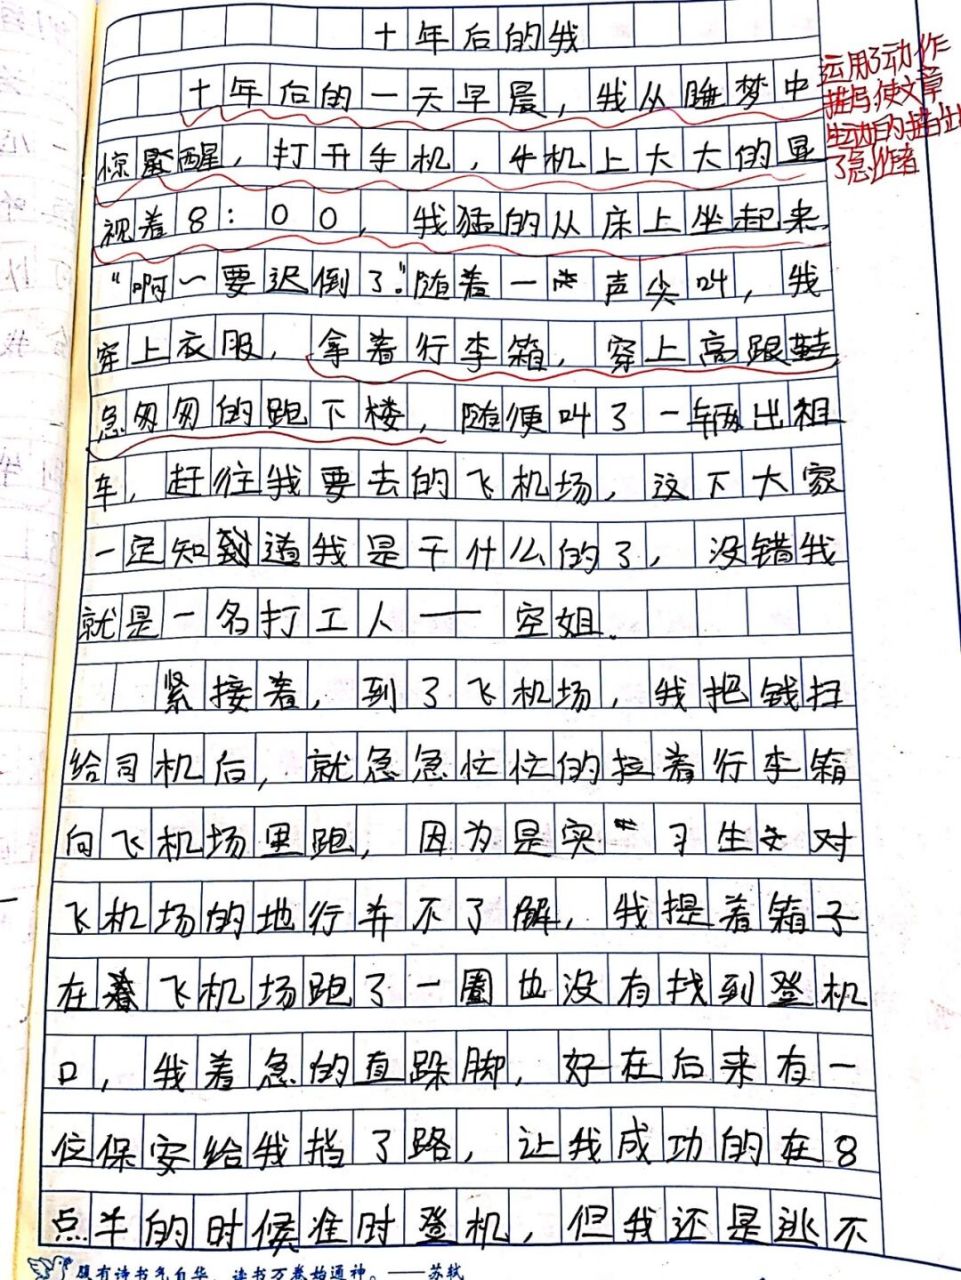 十年后的我
十年后的一天早晨，我从睡梦中
惊醒，打开手机，手机上大大的显
视着8：00，我猛的从床上坐起来
“啊～要迟倒了”随着一声尖叫，我
穿上衣服，拿着行李箱，穿上高跟鞋
急匆匆的跑下楼，随便叫了一辆出租
车，赶往我要去的飞机场，这下大家
一定知道我是干什么的了，没错我
就是一名打工人——空姐．
紧接着，到了飞机场，我把钱扫
给司机后，就急急忙忙的拉着行李箱
向飞机场里跑，因为是实习生对
飞机场的地行并不了解，我提着箱子
在飞机场跑了一圈也没有找到登机
口，我着急的直跺脚，好在后来有一
位保安给我指了路，让我成功的在8
点半的时候准时登机，但我还是逃不
运用了动作
描写，使文章
生动的描出
了急作者
腹有诗书气自华，读书万卷始通神。——苏轼